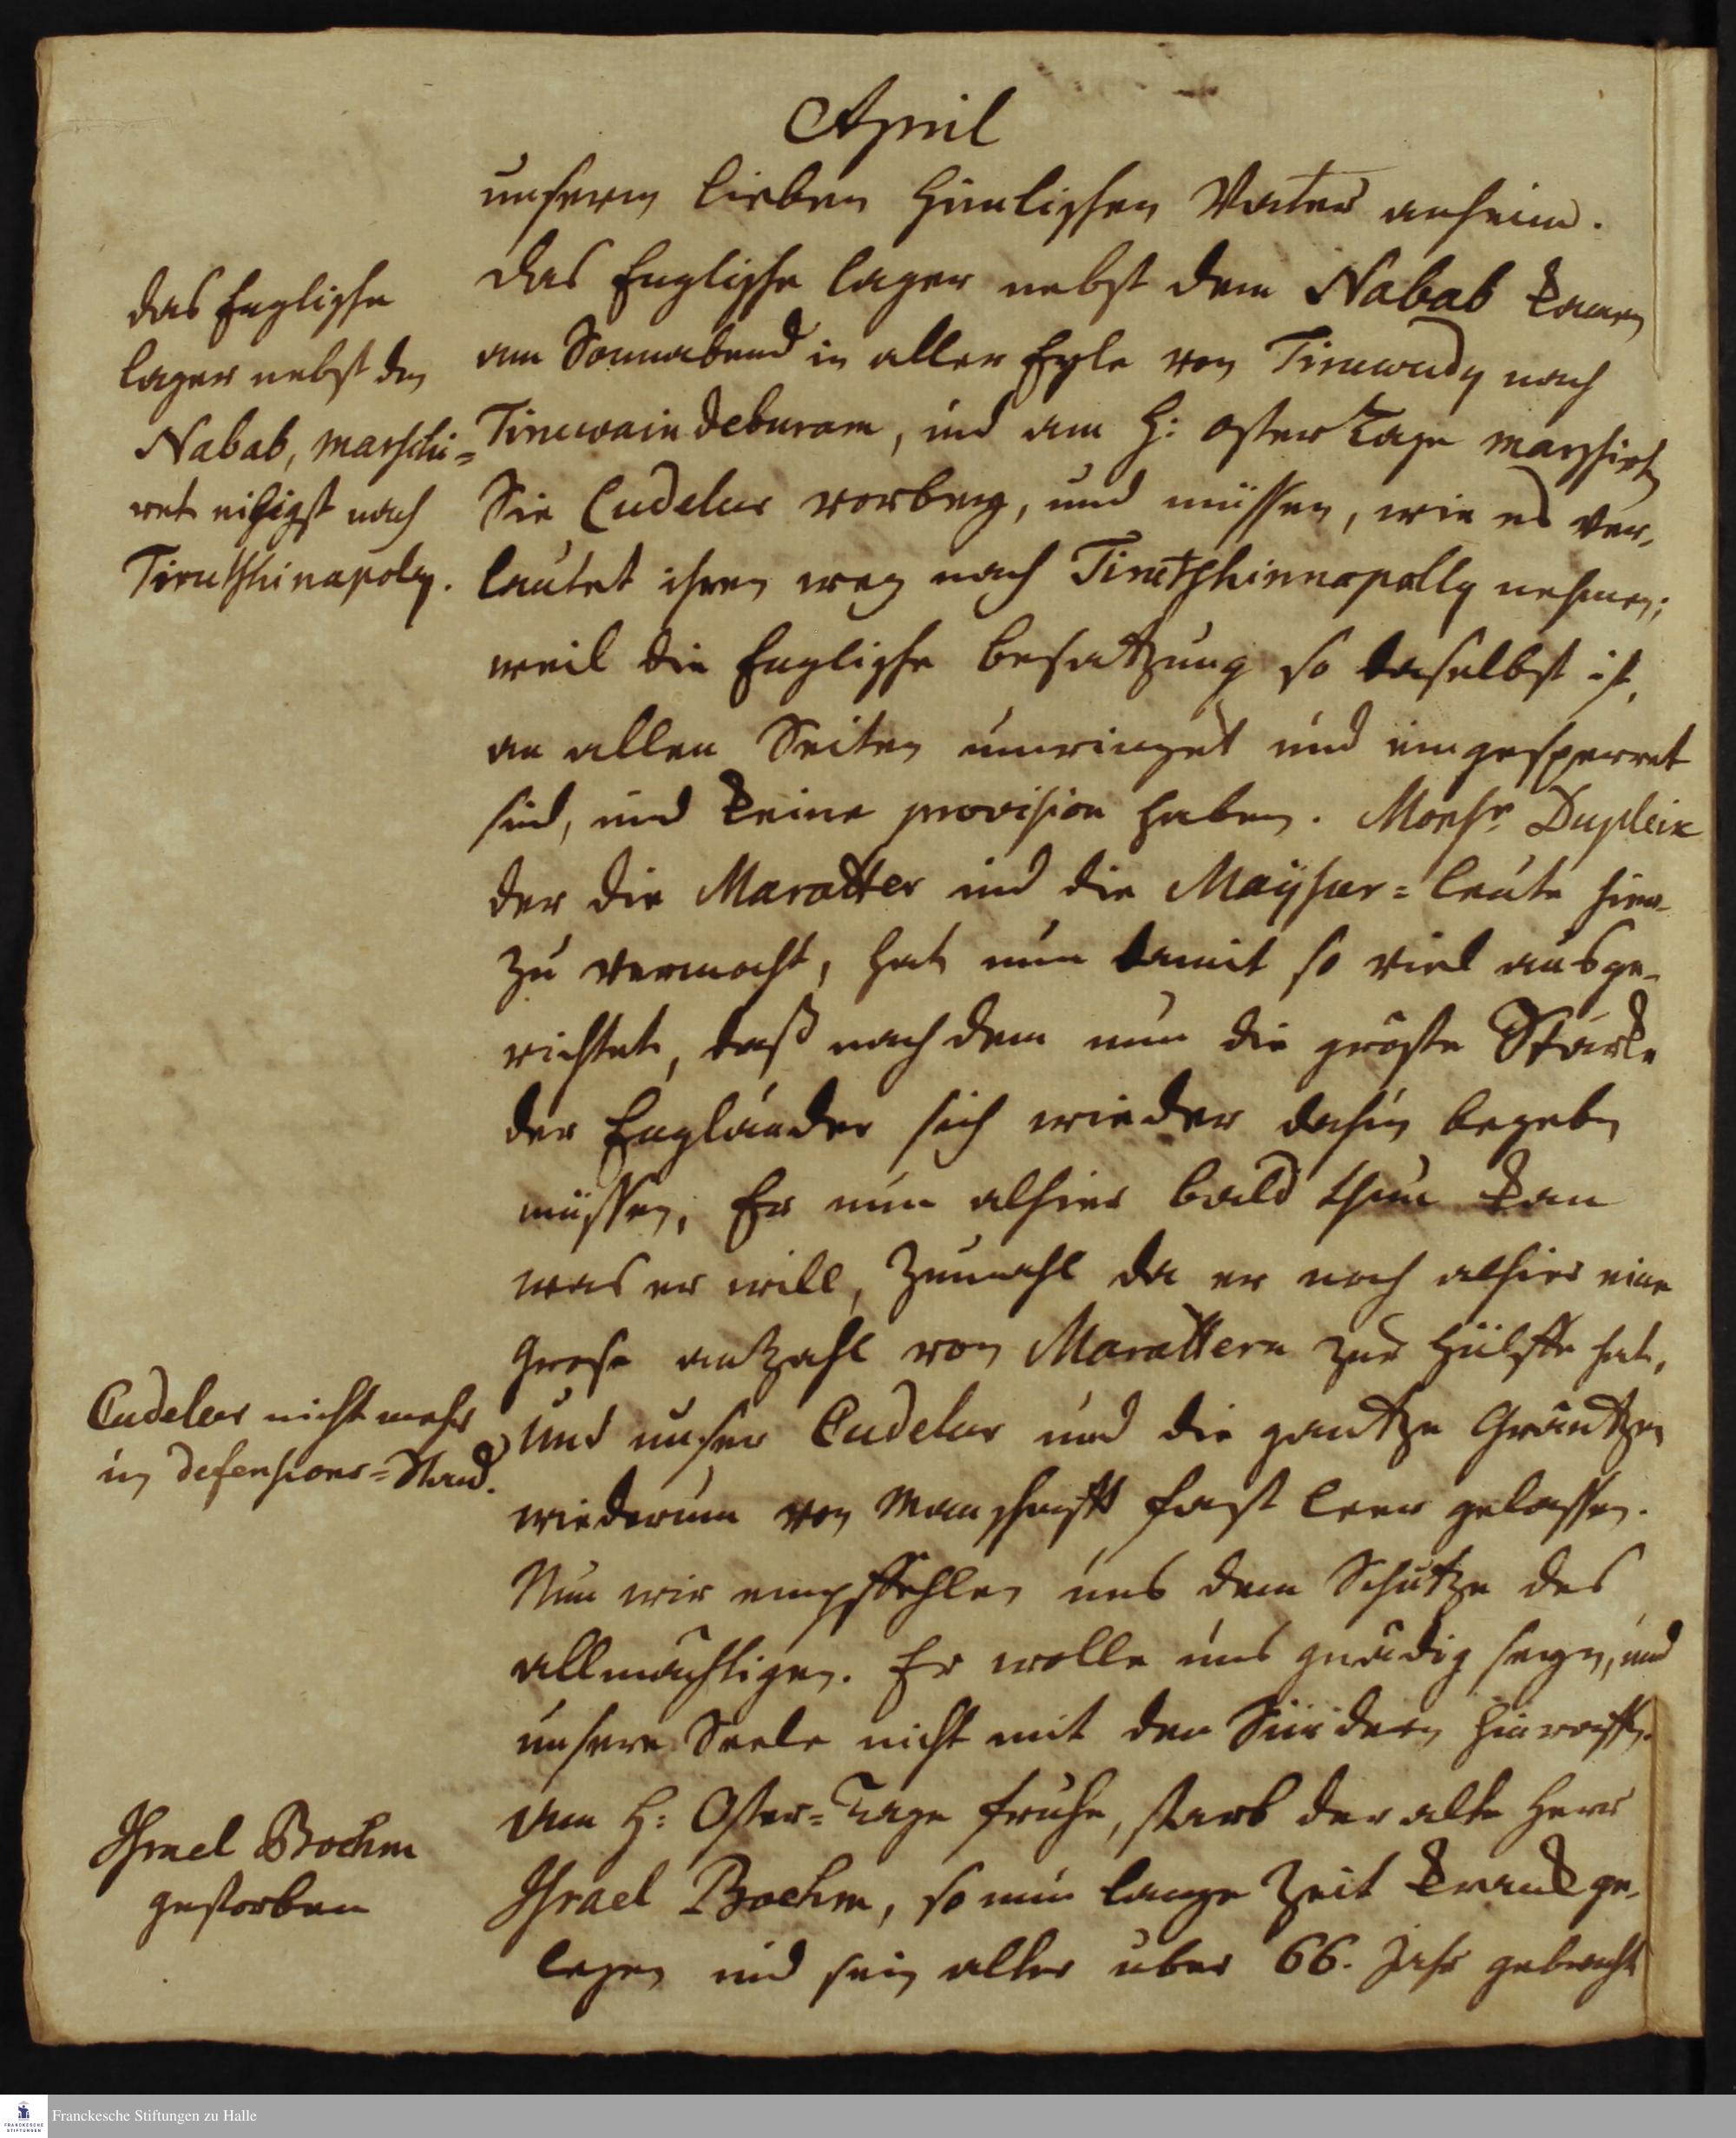 April
unserm lieben Himlischen Vater anheim.
das Englische
lager nebst dem
Nabab, marschi=
ret eiligst nach
Tirutschinapoly.
Das Englische lager nebst dem Nabab kamen
am Sonnabend in aller Eyle von Tiruwadi nach
Tiruwaindeburam, und am H: Oster Tage marschirten
Sie Cudelur vorbey, und müssen, wie es ver,
lautet ihren weg nach Tirutschinnapally nehmen;
weil die Englische besatzung so daselbst ist,
an allen Seiten umringet und eingesperret
sind, und keine provision haben. Monsr Dupleix
der die Maratter und die Maÿsur=leute hier-
zu vermocht, hat nun damit so viel ausge-
richtet, daß nach dem nun die gröste Stärke
der Engländer sich wieder dahin begeben
müssen, Er nun alhier bald thun kan
was er will, Zumahl da er noch alhier eine
grose anzahl von Marattern zur Hülffe hat,
Cudelur nicht mehr
in defensions=Stand.
und unser Cudelur und die gantze Gräntzen
wiederum von Manschafft fast leer gelassen.
Nun wir empffehlen uns dem Schutze des
allmächtigen. Er wolle uns gnädig seyn, und
unsere Seele nicht mit den Sündern hinraffen.
Israel Boehm
gestorben
Am H: Oster=Tage frühe, starb der alte Herr
Israel Boehm, so nun lange Zeit krank ge,
legen und sein alter uber 66. Jahr gebracht
Franckesche Stiftungen zu Halle
FRANCKESCHE
STIFTUNGEN